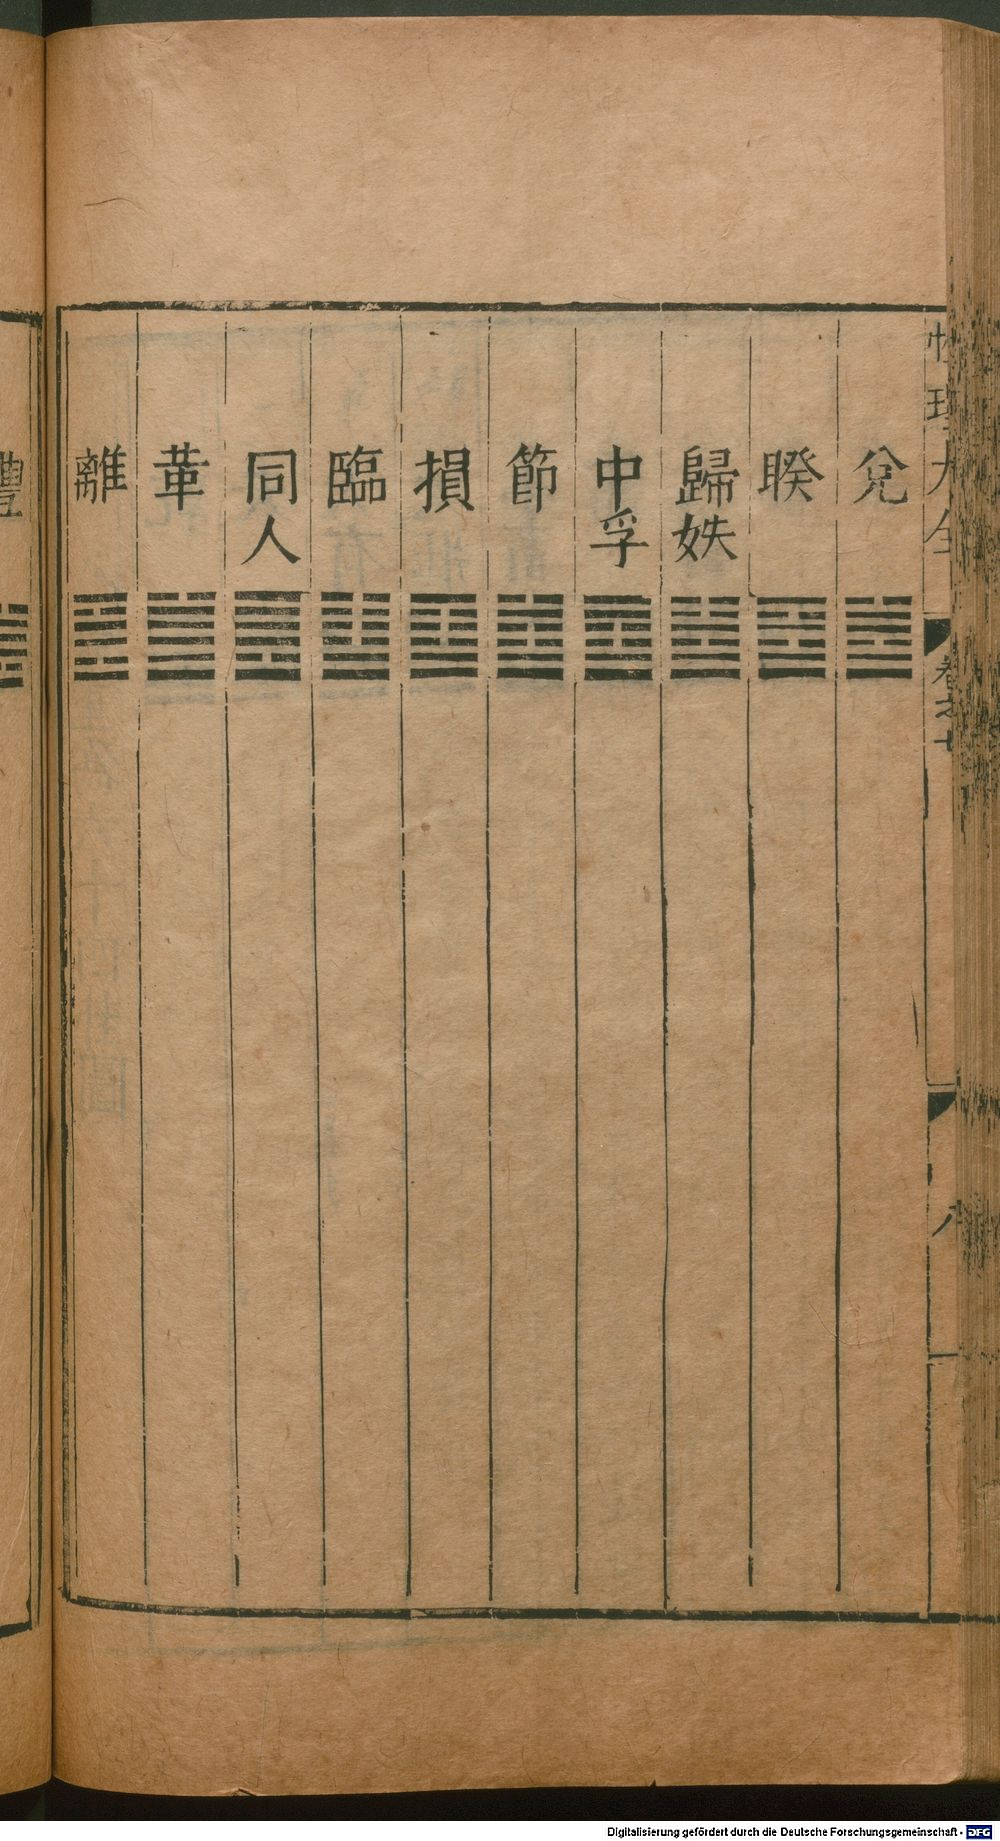 性理大全 卷之七 八
兌 ䷹
睽 ䷥
歸妹 ䷵
中孚 ䷼
節 ䷻
損 ䷨
臨 ䷒
同人 ䷌
革 ䷰
離 ䷝
豐
Digitalisierung gefördert durch die Deutsche Forschungsgemeinschaft - DFG